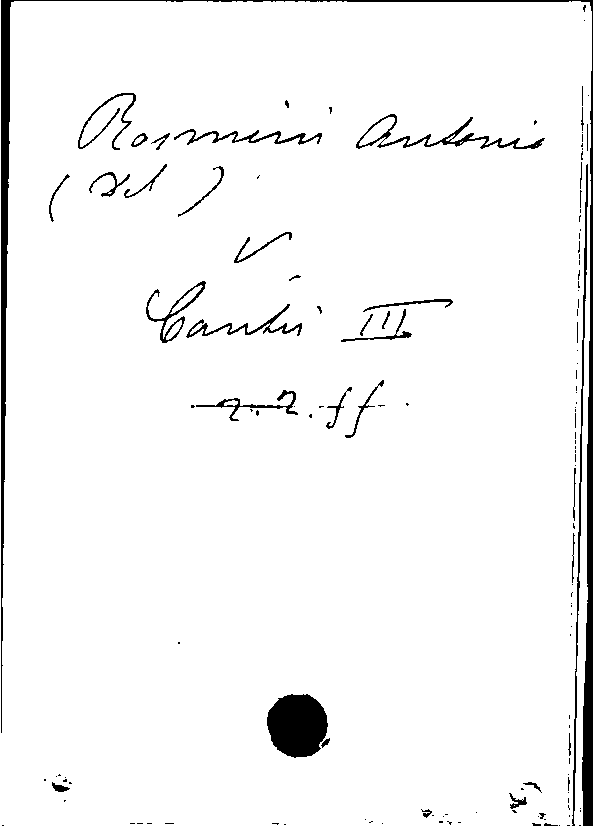 Rosmini Antonio
( Del )
V.
Cantù III
2.2.ff.